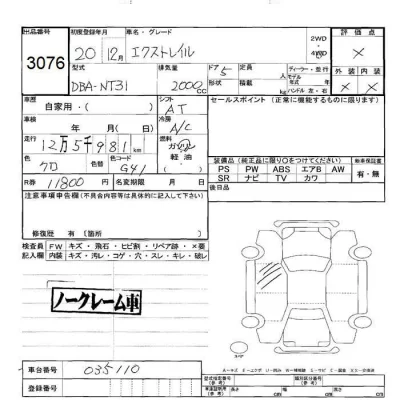 出品番号 初度登録年月 車名・グレード 評価点
3076 20年 12月 エクストレイル 2WD ・ 4WD ×
型式 排気量 ドア 定員 ディーラー・並行 外装 内装
DBA-NT31 2000cc 5 形状 積載 kg モデル年式 年 ハンドル 左・右 × ×
車歴 自家用・( ) シフト AT セールスポイント (正常に機能するものに限ります)
車検 年 月(日) 冷房 A/C
走行 12万5千981km 燃料 ガソリン 軽油 ( )
色 クロ 色替 色コード G41
装備品 (純正品に限り○をつけてください) 取扱保証書
PS PW ABS エアB AW 有・無
SR ナビ TV カワ
R券 11800円 名変期限 月 日 後日品
注意事項申告欄(不具合内容等は具体的に記入して下さい)
修復歴 有 [箇所 ]
検査員記入欄 FW キズ・飛石・ヒビ割・リペア跡・×要
内装 キズ・汚レ・コゲ・穴・スレ・キレ・破レ
ノークレーム車
スペア
車台番号 035110
登録番号
型式指定番号 (参考) 類別区分番号 (参考)
長さ cm 幅 cm 高さ cm